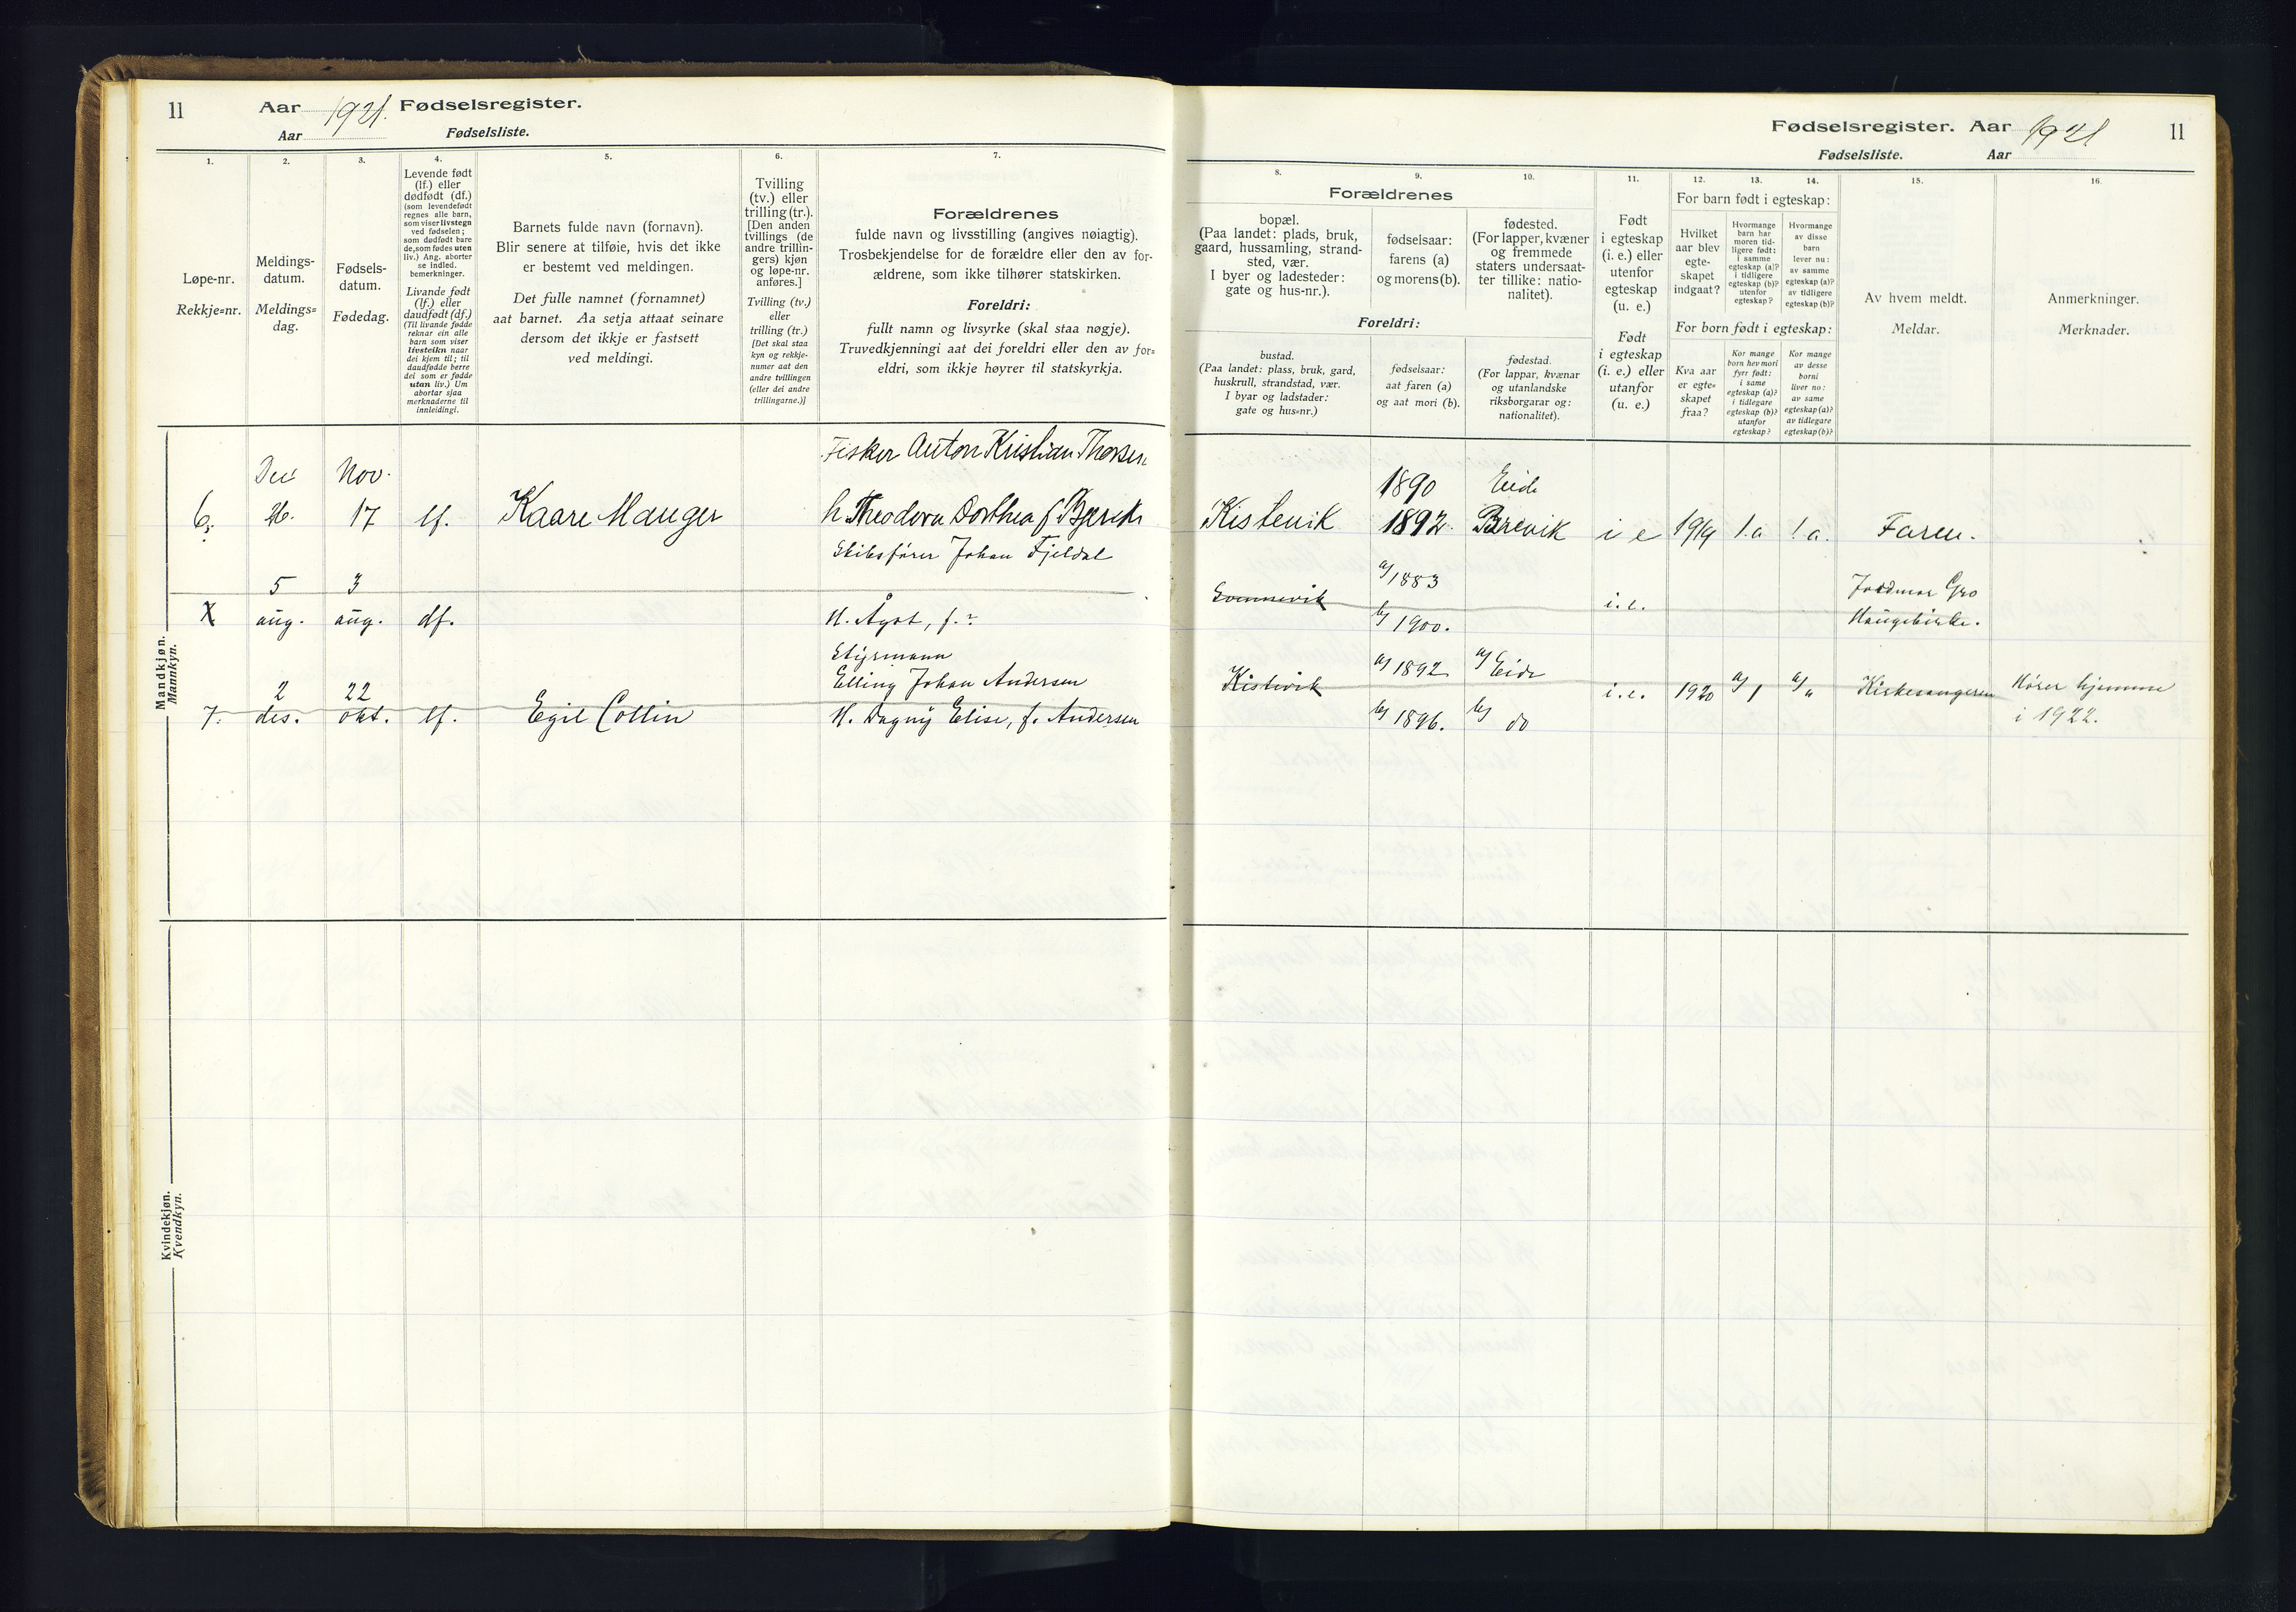 11
Aar 1921. Fødselsregister.
Aar
Fødselsliste.
1.
Løpe-nr.
Rekkje=nr.
2.
Meldings-
datum.
Meldings=
dag.
3.
Fødsels-
datum.
Fødedag.
4.
Levende født
(lf.) eller
dødfødt (df.)
(som levendefødt
regnes alle barn,
som viser livstegn
ved fødselen;
som dødfødt bare
de, som fødes uten
liv.) Ang. aborter
se indled.
bemerkninger.
Livande født
(lf.) eller
daudfødt (df.)
(Til livande fødde
reknar ein alle
barn som viser
livsteikn naar
dei kjem til; til
daudfødde berre
dei som er fødde
utan liv.) Um
abortar sjaa
merknaderne til
innleidingi.
5.
Barnets fulde navn (fornavn).
Blir senere at tilføie, hvis det ikke
er bestemt ved meldingen.
Det fulle namnet (fornamnet)
aat barnet. Aa setja attaat seinare
dersom det ikkje er fastsett
ved meldingi.
6.
Tvilling
(tv.) eller
trilling (tr.).
[Den anden
tvillings (de
andre trillin-
gers) kjøn
og løpe-nr.
anføres.]
Tvilling (tv.)
eller
trilling (tr.)
[Det skal staa
kyn og rekkje-
numer aat den
andre tvillingen
(eller dei andre
trillingarne.)]
7.
Forældrenes
fulde navn og livsstilling (angives nøiagtig).
Trosbekjendelse for de forældre eller den av for-
ældrene, som ikke tilhører statskirken.
Foreldri:
fullt namn og livsyrke (skal staa nøgje).
Truvedkjenningi aat dei foreldri eller den av for=
eldri, som ikkje høyrer til statskyrkja.
Mandkjøn.
Mannkyn.
Fisker Anton Kristian Thorsen
Nov.
6. 17 lf. Kaare Mauger
Skibsfører Johan Fjeldal
5 3
X aug. aug. df. H. Ågot, f. ?
Styrmann
Elling Johan Andersen
2 22
7. des. okt. lf. Egil Collin H. Dagny Elise, f. Andersen
Kvindekjøn.
Kvendkyn.
Fødselsregister. Aar 1921 11
Fødselsliste. Aar
8.
Forældrenes
bopæl.
(Paa landet: plads, bruk,
gaard, hussamling, strand-
sted, vær.
I byer og ladesteder:
gate og hus-nr.).
Foreldri:
bustad.
(Paa landet: plass, bruk, gard,
huskrull, strandstad, vær.
I byar og ladstader:
gate og hus=nr.)
9.
fødselsaar:
farens (a)
og morens (b).
fødselsaar:
aat faren (a)
og aat mori (b).
10.
fødested.
(For lapper, kvæner
og fremmede
staters undersaat-
ter tillike: natio-
nalitet).
fødestad.
(For lappar, kvænar
og utanlandske
riksborgarar og:
nationalitet).
11.
Født
i egteskap
(i. e.) eller
utenfor
egteskap
(u. e.)
Født
i egteskap
(i. e.) eller
utanfor
(u. e.)
12. 13. 14.
For barn født i egteskap:
Hvilket
aar blev
egte-
skapet
indgaat?
Hvormange
barn har
moren tid-
ligere født:
i samme
egteskap (a)?
i tidligere
egteskap (b)?
utenfor
egteskap?
Hvormange
av disse
barn
lever nu:
av samme
egteskap (a)?
av tidligere
egteskap (b)?
For born født i egteskap:
Kva aar
er egte=
skapet
fraa?
Kor mange
born hev mori
fyrr født:
i same
egteskap (a)?
i tidlegare
egteskap (b)?
utanfor
egteskap?
Kor mange
av desse
borni
liver no:
av same
egteskap (a)?
av tidlegare
egteskap (b)?
15.
Av hvem meldt.
Meldar.
16.
Anmerkninger.
Merknader.
1890 Eide
Kistevik 1892 Brevik i e 1919 1.a 1.a. Faren.
a/ 1883
i.e.
b/ 1900.
a/ 1892 a/ Eide
Kistevik i.e. 1920 a/ 1 a/ "
b/ 1896. b/ do
i 1922.